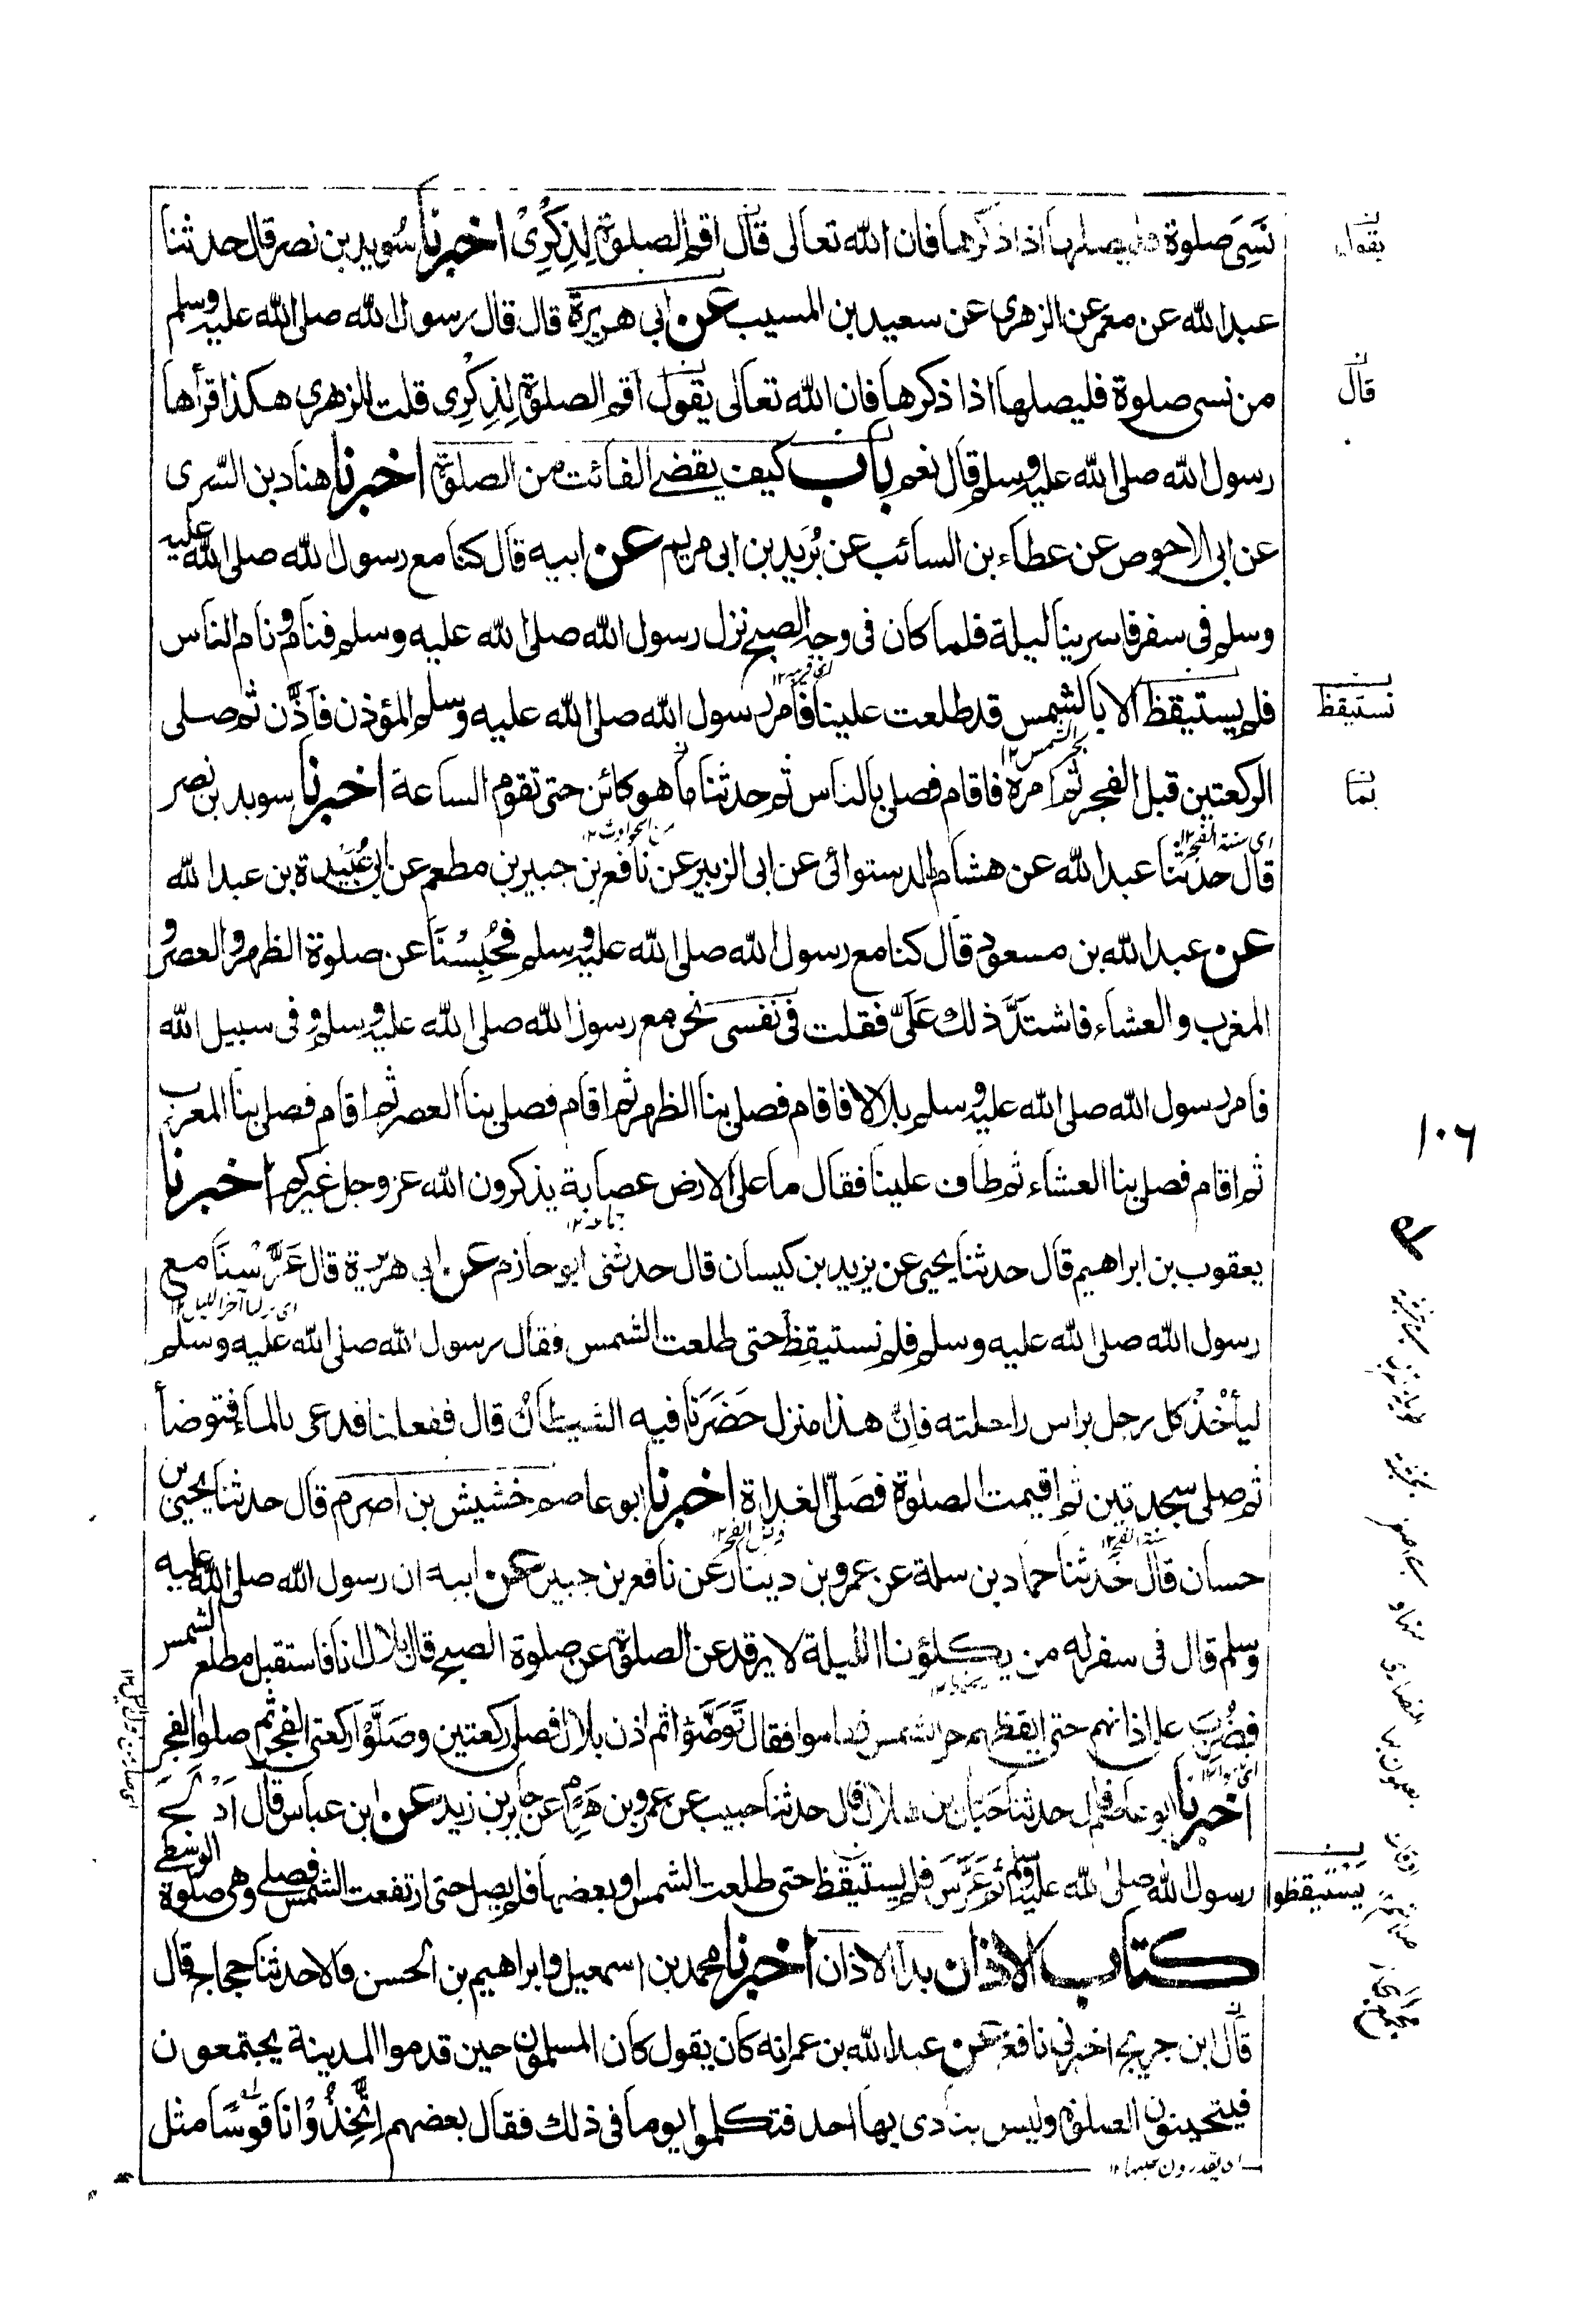 نَسِىَ صلوة فليصلها اذا ذكرها فان الله تعالى قال اقم الصلوة لِذِكْرِىْ اخبرنا سُويد بن نصر قال حدثنا
يقول
عبد الله عن معمر عن الزهرى عن سعيد بن المسيب عن ابى هريرة قال قال رسول الله صلى الله عليه وسلم
من نسى صلوة فليصلها اذا ذكرها فان الله تعالى يقول اقم الصلوة لِذِكْرِى قلت للزهرى هكذا قرأها
قال
رسول الله صلى الله عليه وسلم قال نعم باب كيف يقضى الفائت من الصلوة اخبرنا هناد بن السَّرى
عن ابى الاحوص عن عطاء بن السائب عن بُرَيد بن ابى مريم عن ابيه قال كنا مع رسول الله صلى الله عليه
وسلم فى سفر فاسرينا ليلة فلما كان فى وجه الصبح نزل رسول الله صلى الله عليه وسلم فنام ونام الناس
فلم يستيقظ الا بالشمس قد طلعت علينا فأمر رسول الله صلى الله عليه وسلم المؤذن فاَذَّن ثم صلى
نستيقظ
بحر الشمس ١٢
الركعتين قبل الفجر ثم امره فاقام فصلى بالناس ثم حدثنا ما هو كائن حتى تقوم الساعة اخبرنا سويد بن نصر
بما
اى سنة الفجر ١٢
من الحوادث ١٢
قال حدثنا عبد الله عن هشام الدستوائى عن ابى الزبير عن نافع بن جبير بن مطعم عن ابى عُبَيْدة بن عبد الله
عن عبد الله بن مسعود قال كنا مع رسول الله صلى الله عليه وسلم فَحُبِسْنَا عن صلوة الظهر والعصر و
المغرب والعشاء فاشتدَّ ذلك عَلَىَّ فقلت فى نفسى نحن مع رسول الله صلى الله عليه وسلم وفى سبيل الله
فامر رسول الله صلى الله عليه وسلم بلالا فاقام فصلى بنا الظهر ثم اقام فصلى بنا العصر ثم اقام فصلى بنا المغرب
١٠٦
ثم اقام فصلى بنا العشاء ثم طاف علينا فقال ما على الارض عصابة يذكرون الله عز وجل غيركم اخبرنا
جماعة ١٢
يعقوب بن ابراهيم قال حدثنا يحيى عن يزيد بن كيسان قال حدثنى ابو حازم عن ابى هريرة قال عَرَّسْنَا مع
اى نزلنا آخر الليل ١٢
رسول الله صلى الله عليه وسلم فلم نستيقِظْ حتى طلعت الشمس فقال رسول الله صلى الله عليه وسلم
ليأخُذْ كل رجل براس راحلته فاِنَّ هذا منزل حَضَرَنَا فيه الشيطانُ قال ففعلنا فدعى بالماء فتوضأ
ثم صلى سجدتين ثم اقيمت الصلوة فصَلَّى الغداة اخبرنا ابو عاصم خشيش بن اصرم قال حدثنا يحيى بن
سنة الفجر ١٢
فرض الفجر ١٢
حسان قال حدثنا حماد بن سلمة عن عمرو بن دينار عن نافع بن جبير عن ابيه ان رسول الله صلى الله عليه
وسلم قال فى سفر له من يكلؤنا الليلة لا يرقد عن الصلوة عن صلوة الصبح قال بلال انا فاستقبل مطلع الشمس
فضُرِبَ على اذانهم حتى ايقظهم حر الشمس فقاموا فقال تَوَضَّؤا ثم اذن بلال فصلى ركعتين وصَلَّوْا ركعتى الفجر ثم صلوا الفجر
اخبرنا ابو عاصم قال حدثنا حَبَّان بن هلال قال حدثنا حبيب عن عمرو بن هَرِم عن جابر بن زيد عن ابن عباس قال اَدْلَجَ
رسول الله صلى الله عليه وسلم ثم عَرَّسَ فلم يستيقظ حتى طلعت الشمس او بعضها فلم يصل حتى ارتفعت الشمس فصلى وهى صلوة الوسطى
يستيقظوا
كتاب الاذان بدأ الاذان اخبرنا محمد بن اسمعيل وابراهيم بن الحسن قالا حدثنا حجاج قال
قال ابن جريج اخبرنى نافع عن عبد الله بن عمر انه كان يقول كان المسلمون حين قدموا المدينة يجتمعون
فيتحينون الصلوة وليس ينادى بها احد فتكلموا يوما فى ذلك فقال بعضهم اتَّخِذُوْا ناقوسًا مثل